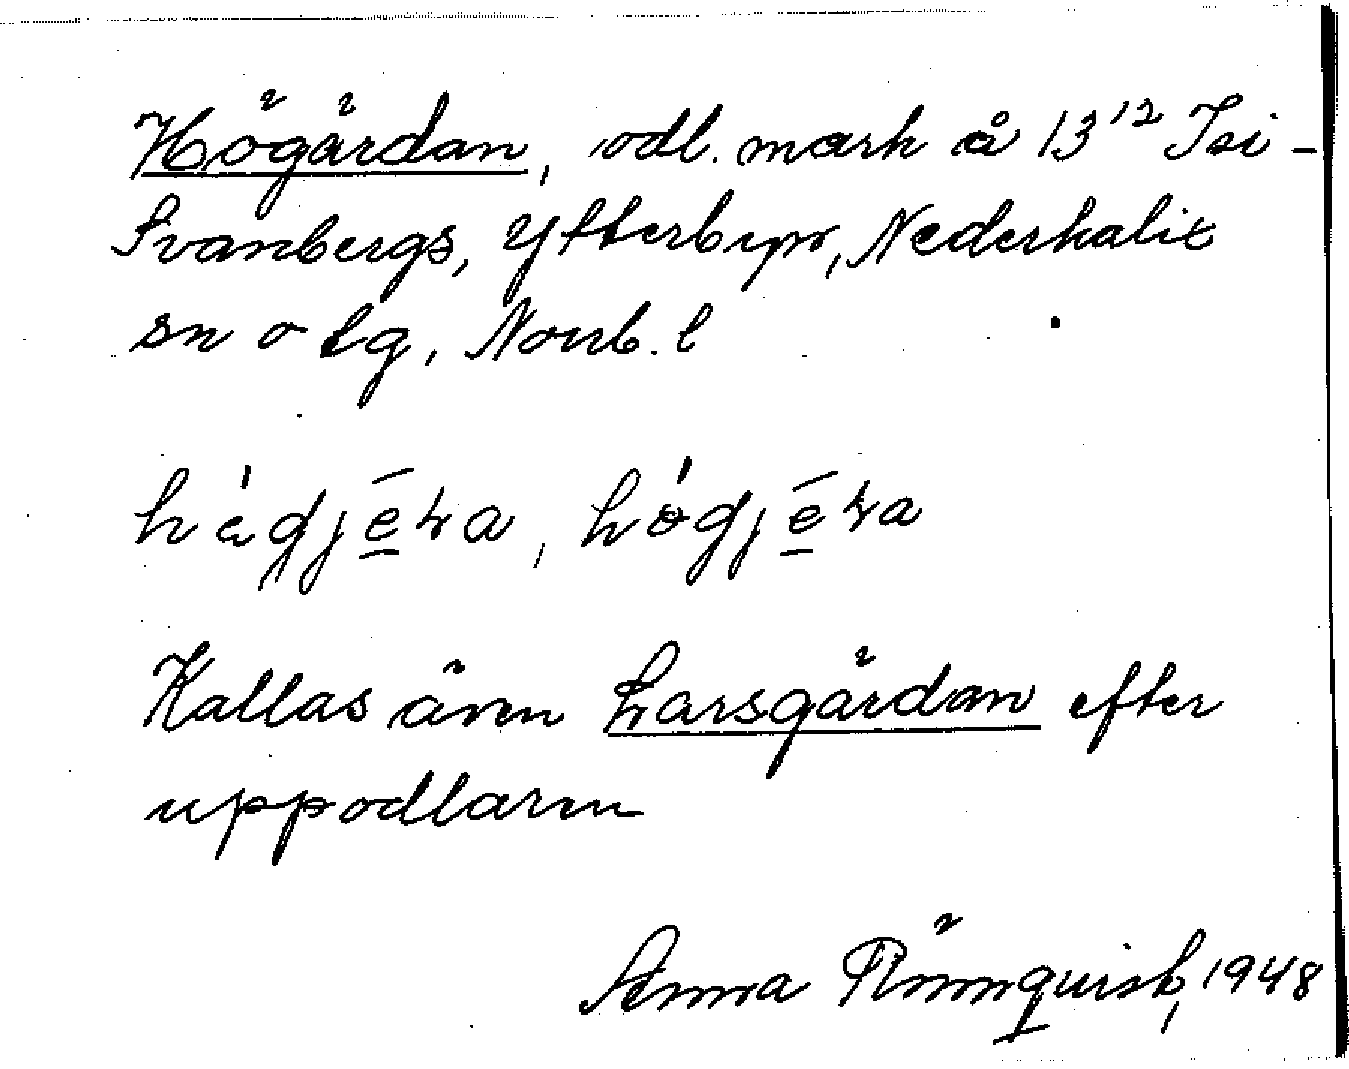 Högärdan, odl. mark å 13¹² Isi-
Svanbergs, Ytterbyn, Nederkalix
sn o tg, Norrb. l
Kallas även Larsgärdan efter
uppodlaren
Anna Rönnquist, 1948